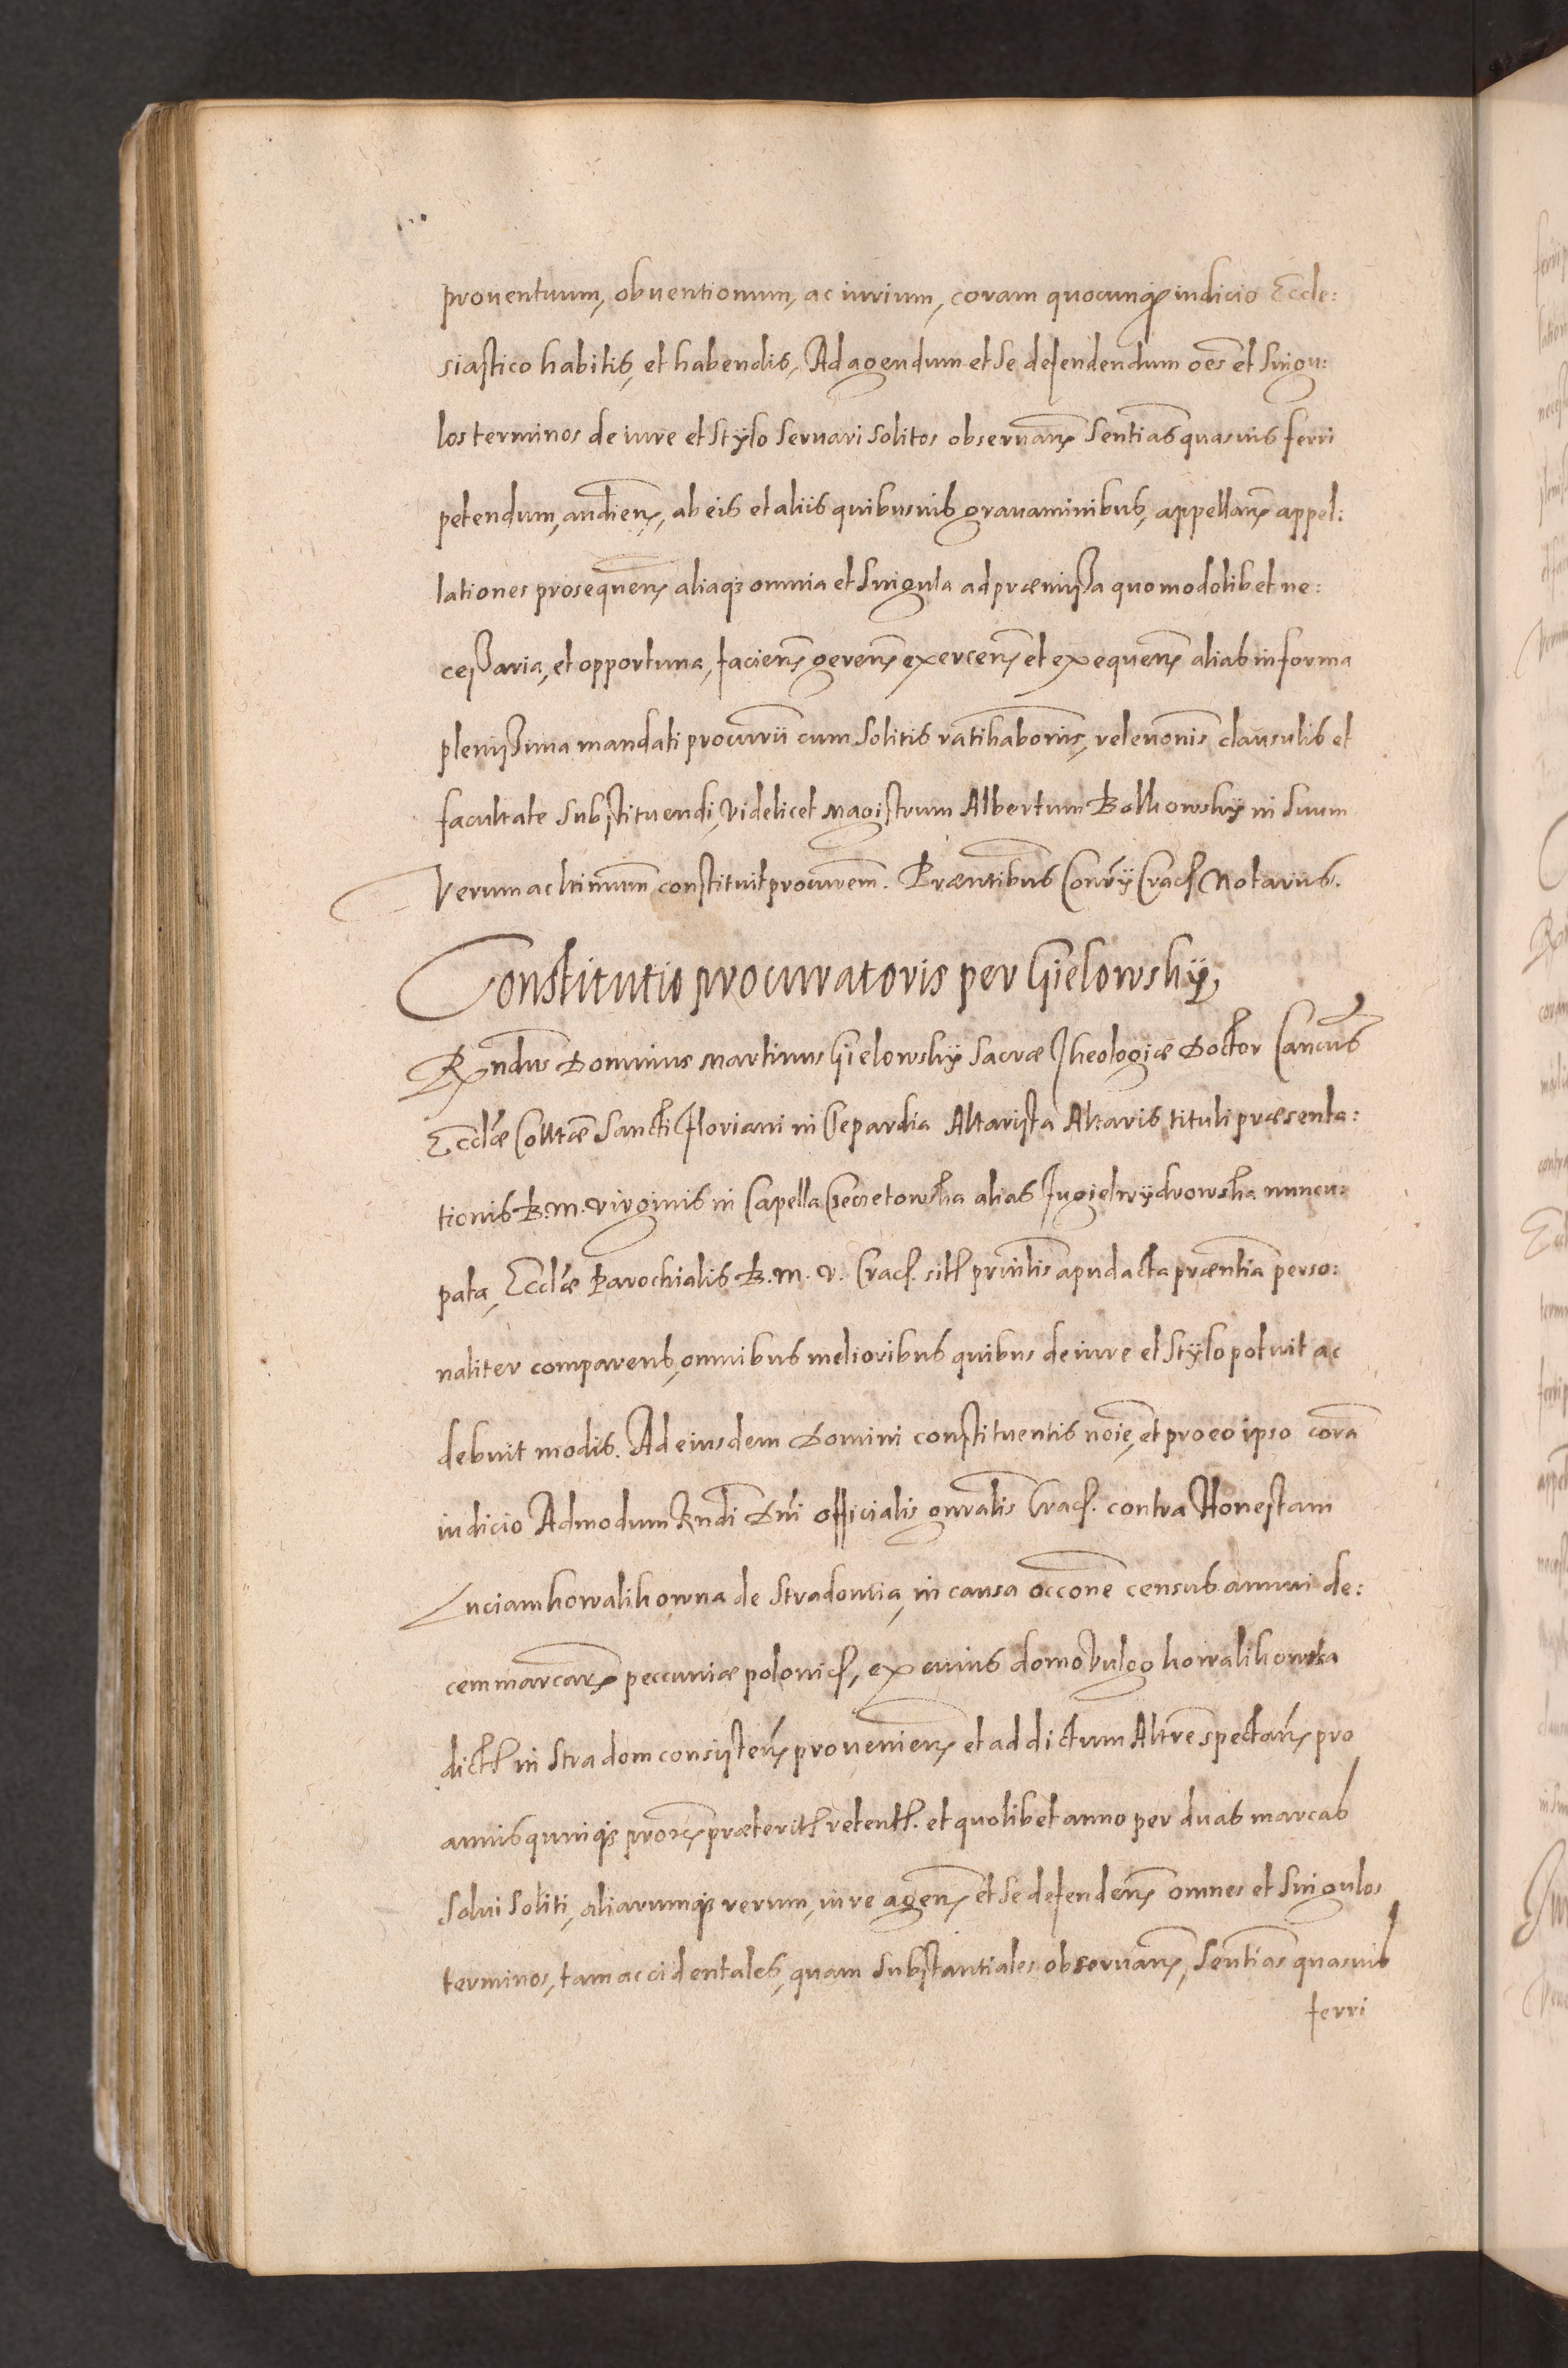 prouentuum, obuentionum, ac iurium, coram quocunq iudicio Eccle:
siastico habitis, et habendis, Ad agendum et se defendendum oēs et singu:
los terminos de iure et stylo seruari solitos obseruanđ Sentias quasuis ferri
petendum, audienđ, ab eis et aliis quibusuis grauaminibus, appellanđ appel:
lationes prosequenđ aliaq; omnia et singula ad præmissa quomodolibet ne:
cessaria, et opportuna, faciend gerenđ exercenđ et exequenđ alias in forma
plenissima mandati procurii cum solitis ratihabonis, releuonis clausulis et
facultate substituendi, videlicet Magistrum Albertum Bolkowsky in suum
verum ac ltimum constituit procurem. Præntibus Conrÿ Crac. Notarius.
Constitutio procuratoris per Gielowsky,
Rndus Dominus Martinus Gielowsky Sacræ Theologiæ Doctor Cancus
Eccliæ Colltæ Sancti Floriani in Clepardia Altarista Altaris tituli præsenta:
tionis B. M. virginis in Capella alias nuncu:
pata, Eccliæ Parochialis B. M. V. Crac. sitt principalis apud acta præntia perso:
naliter comparens, omnibus melioribus quibus de iure et stylo potuit ac
debuit modis. Ad eiusdem Domini constituentis noie, et pro eo ipso corā
iudicio Admodum Rndi Dni officialis gnralis Crac. contra Honestam
Luciam kowalikowna de Stradomia, in causa occone census annui de:
cem marcarđ peccuniæ polonic, ex cuius domo vulgo kowalikowska
dict in Stradom consistenđ prouenienđ et ad dictum Altre spectanđ pro
annis quinq; prox præterit retent. et quolibet anno per duas marcas
solui soliti, aliarumq; rerum, iure agenđ et se defendenđ omnes et singulos
terminos, tam accidentales, quam substantiales obseruanđ, Sentias quasuis
ferri